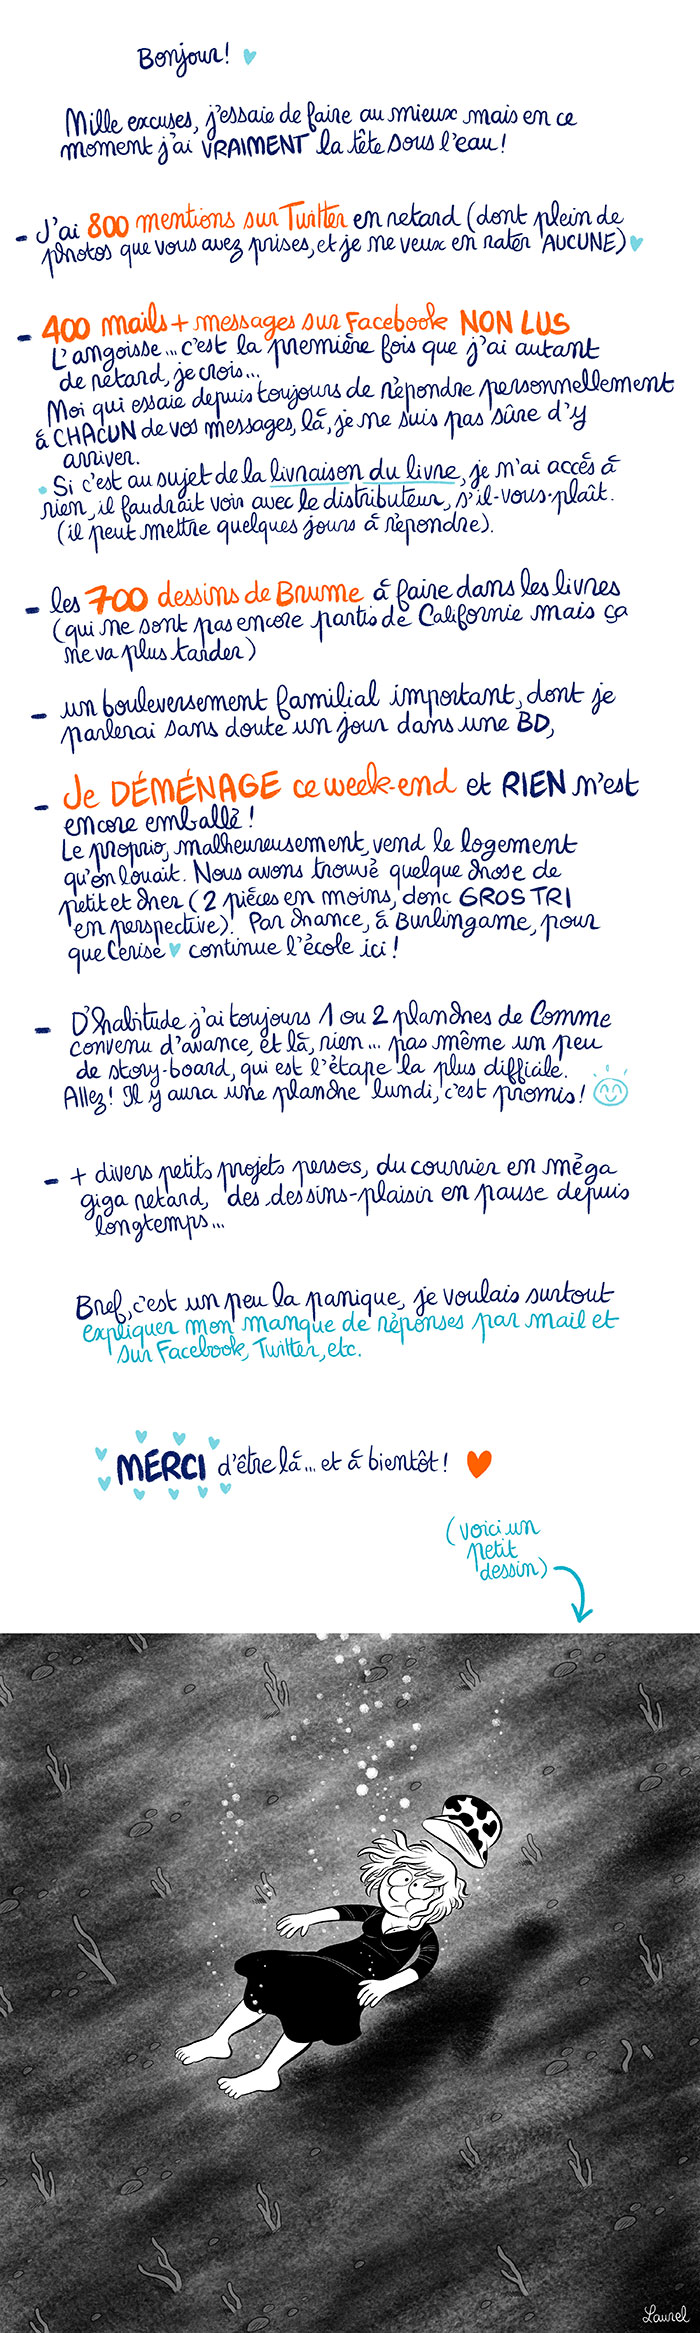 Bonjour!
Mille excuses, j'essaie de faire au mieux mais en ce
moment j'ai VRAIMENT la tête sous l'eau!
- J'ai 800 mentions sur Twitter en retard (dont plein de
photos que vous avez prises, et je ne veux en rater AUCUNE)
- 400 mails + messages sur Facebook NON LUS
L'angoisse... c'est la première fois que j'ai autant
de retard, je crois...
Moi qui essaie depuis toujours de répondre personnellement
à CHACUN de vos messages, là, je ne suis pas sûre d'y
arriver.
• Si c'est au sujet de la livraison du livre, je n'ai accès à
rien, il faudrait voir avec le distributeur, s'il-vous-plaît.
(il peut mettre quelques jours à répondre).
- les 700 dessins de Brume à faire dans les livres
(qui ne sont pas encore partis de Californie mais ça
ne va plus tarder)
- un bouleversement familial important, dont je
parlerai sans doute un jour dans une BD,
- Je DÉMÉNAGE ce week-end et RIEN n'est
encore emballé!
Le proprio, malheureusement, vend le logement
qu'on louait. Nous avons trouvé quelque chose de
petit et cher (2 pièces en moins, donc GROS TRI
en perspective). Par chance, à Burlingame, pour
que Cerise continue l'école ici!
- D'habitude j'ai toujours 1 ou 2 planches de Comme
convenu d'avance, et là, rien... pas même un peu
de story-board, qui est l'étape la plus difficile.
Allez! Il y aura une planche lundi, c'est promis!
- + divers petits projets persos, du courrier en méga
giga retard, des dessins-plaisir en pause depuis
longtemps...
Bref, c'est un peu la panique, je voulais surtout
expliquer mon manque de réponses par mail et
sur Facebook, Twitter, etc.
MERCI d'être là... et à bientôt!
(voici un
petit
dessin)
Laurel